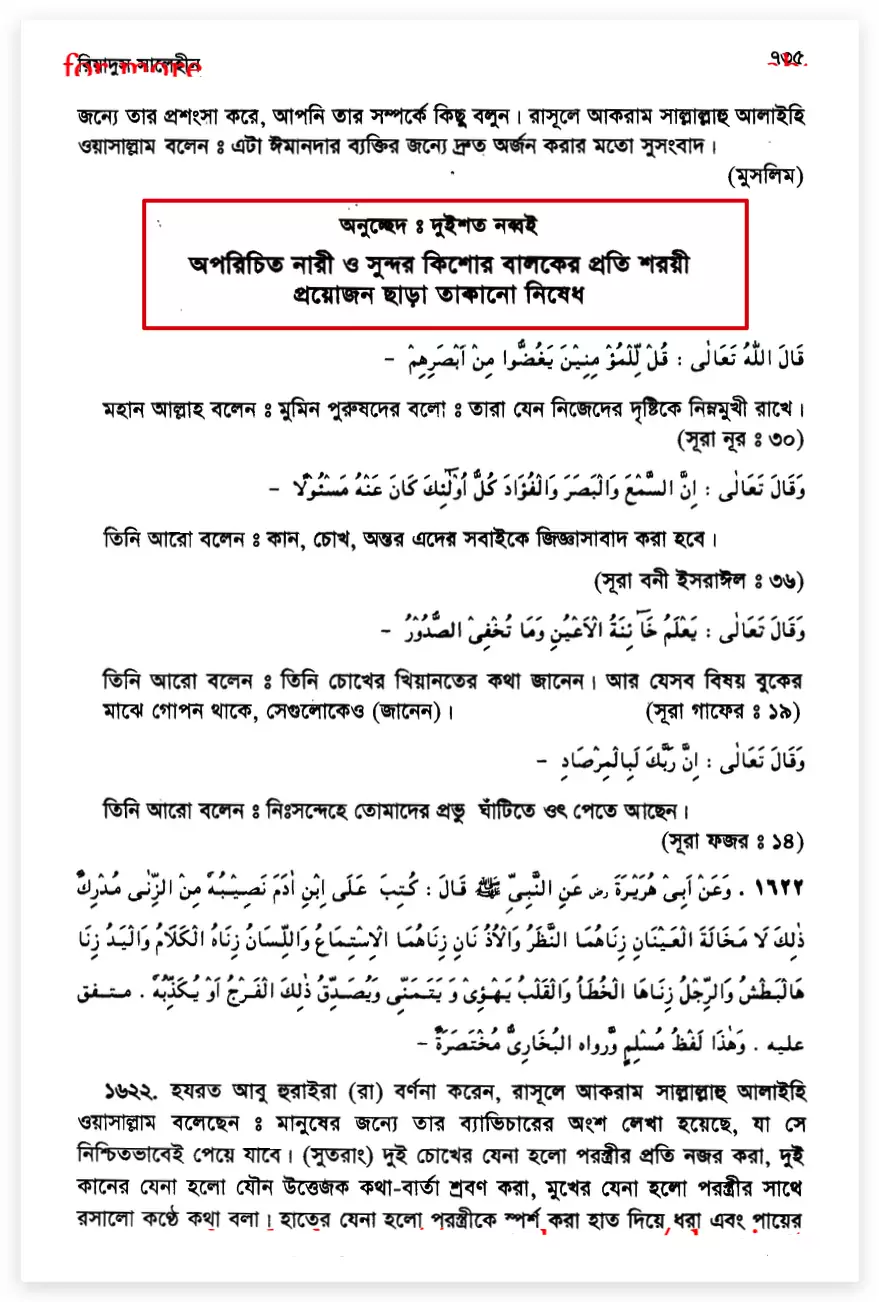 রিয়াদুস সালেহীন ৭৩৫
জন্যে তার প্রশংসা করে, আপনি তার সম্পর্কে কিছু বলুন। রাসূলে আকরাম সাল্লাল্লাহু আলাইহি
ওয়াসাল্লাম বলেন ঃ এটা ঈমানদার ব্যক্তির জন্যে দ্রুত অর্জন করার মতো সুসংবাদ।
(মুসলিম)
অনুচ্ছেদ ঃ দুইশত নব্বই
অপরিচিত নারী ও সুন্দর কিশোর বালকের প্রতি শরয়ী
প্রয়োজন ছাড়া তাকানো নিষেধ
قَالَ اللّٰهُ تَعَالٰى : قُلْ لِّلْمُؤْ مِنِيْنَ يَغُضُّوا مِنْ اَبْصَرِهِمْ -
মহান আল্লাহ বলেন ঃ মুমিন পুরুষদের বলো ঃ তারা যেন নিজেদের দৃষ্টিকে নিম্নমুখী রাখে।
(সূরা নূর ঃ ৩০)
وَقَالَ تَعَالٰى : اِنَّ السَّمْعَ وَالْبَصَرَ وَالْفُؤَادَ كُلُّ اُولٰٓئِكَ كَانَ عَنْهُ مَسْئُولًا -
তিনি আরো বলেন ঃ কান, চোখ, অন্তর এদের সবাইকে জিজ্ঞাসাবাদ করা হবে।
(সূরা বনী ইসরাঈল ঃ ৩৬)
وَقَالَ تَعَالٰى : يَعْلَمُ خَآ ئِنَةُ الْاَعْيُنِ وَمَا تُخْفِىْ الصُّدُوْرُ -
তিনি আরো বলেন ঃ তিনি চোখের খিয়ানতের কথা জানেন। আর যেসব বিষয় বুকের
মাঝে গোপন থাকে, সেগুলোকেও (জানেন)। (সূরা গাফের ঃ ১৯)
وَقَالَ تَعَالٰى : اِنَّ رَبَّكَ لَبِالْمِرْصَادِ -
তিনি আরো বলেন ঃ নিঃসন্দেহে তোমাদের প্রভু ঘাঁটিতে ওৎ পেতে আছেন।
(সূরা ফজর ঃ ১৪)
١٦٢٢ . وَعَنْ اَبِىْ هُرَيْرَةَ رض عَنِ النَّبِىِّ ﷺ قَالَ : كُتِبَ عَلَى ابْنِ اٰدَمَ نَصِيْبُهٗ مِنَ الزِّنٰى مُدْرِكٌ
ذٰلِكَ لَا مَحَالَةَ الْعَيْنَانِ زِنَاهُمَا النَّظَرُ وَالْاُذُ نَانِ زِنَاهُمَا الْاِسْتِمَاعُ وَاللِّسَانُ زِنَاهُ الْكَلَامُ وَالْيَدُ زِنَا
هَالْبَطْشُ وَالرِّجْلُ زِنَاهَا الْخُطَأُ وَالْقَلْبُ يَهْوٰى وَ يَتَمَنّٰى وَيُصَدِّقُ ذٰلِكَ الْفَرْجُ اَوْ يُكَذِّبُهٗ . متفق
عليه . وَهٰذَا لَفْظُ مُسْلِمٍ وَّرواه الْبُخَارِىُّ مُخْتَصَرَةً -
১৬২২. হযরত আবু হুরাইরা (রা) বর্ণনা করেন, রাসূলে আকরাম সাল্লাল্লাহু আলাইহি
ওয়াসাল্লাম বলেছেন ঃ মানুষের জন্যে তার ব্যাভিচারের অংশ লেখা হয়েছে, যা সে
নিশ্চিতভাবেই পেয়ে যাবে। (সুতরাং) দুই চোখের যেনা হলো পরস্ত্রীর প্রতি নজর করা, দুই
কানের যেনা হলো যৌন উত্তেজক কথা-বার্তা শ্রবণ করা, মুখের যেনা হলো পরস্ত্রীর সাথে
রসালো কণ্ঠে কথা বলা। হাতের যেনা হলো পরস্ত্রীকে স্পর্শ করা হাত দিয়ে ধরা এবং পায়ের